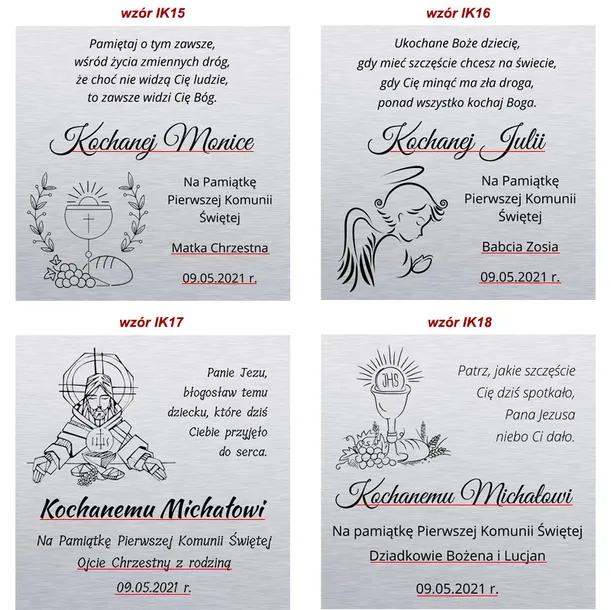 wzór IK15
Pamiętaj o tym zawsze,
wśród życia zmiennych dróg,
że choć nie widzą Cię ludzie,
to zawsze widzi Cię Bóg.
Kochanej Monice
Na Pamiątkę
Pierwszej Komunii
Świętej
Matka Chrzestna
09.05.2021 r.
wzór IK16
Ukochane Boże dziecię,
gdy mieć szczęście chcesz na świecie,
gdy Cię minąć ma zła droga,
ponad wszystko kochaj Boga.
Kochanej Julii
Na Pamiątkę
Pierwszej Komunii
Świętej
Babcia Zosia
09.05.2021 r.
wzór IK17
Panie Jezu,
błogosław temu
dziecku, które dziś
Ciebie przyjęło
do serca.
IHS
Kochanemu Michałowi
Na Pamiątkę Pierwszej Komunii Świętej
Ojcie Chrzestny z rodziną
09.05.2021 r.
wzór IK18
JHS
Patrz, jakie szczęście
Cię dziś spotkało,
Pana Jezusa
niebo Ci dało.
Kochanemu Michałowi
Na pamiątkę Pierwszej Komunii Świętej
Dziadkowie Bożena i Lucjan
09.05.2021 r.